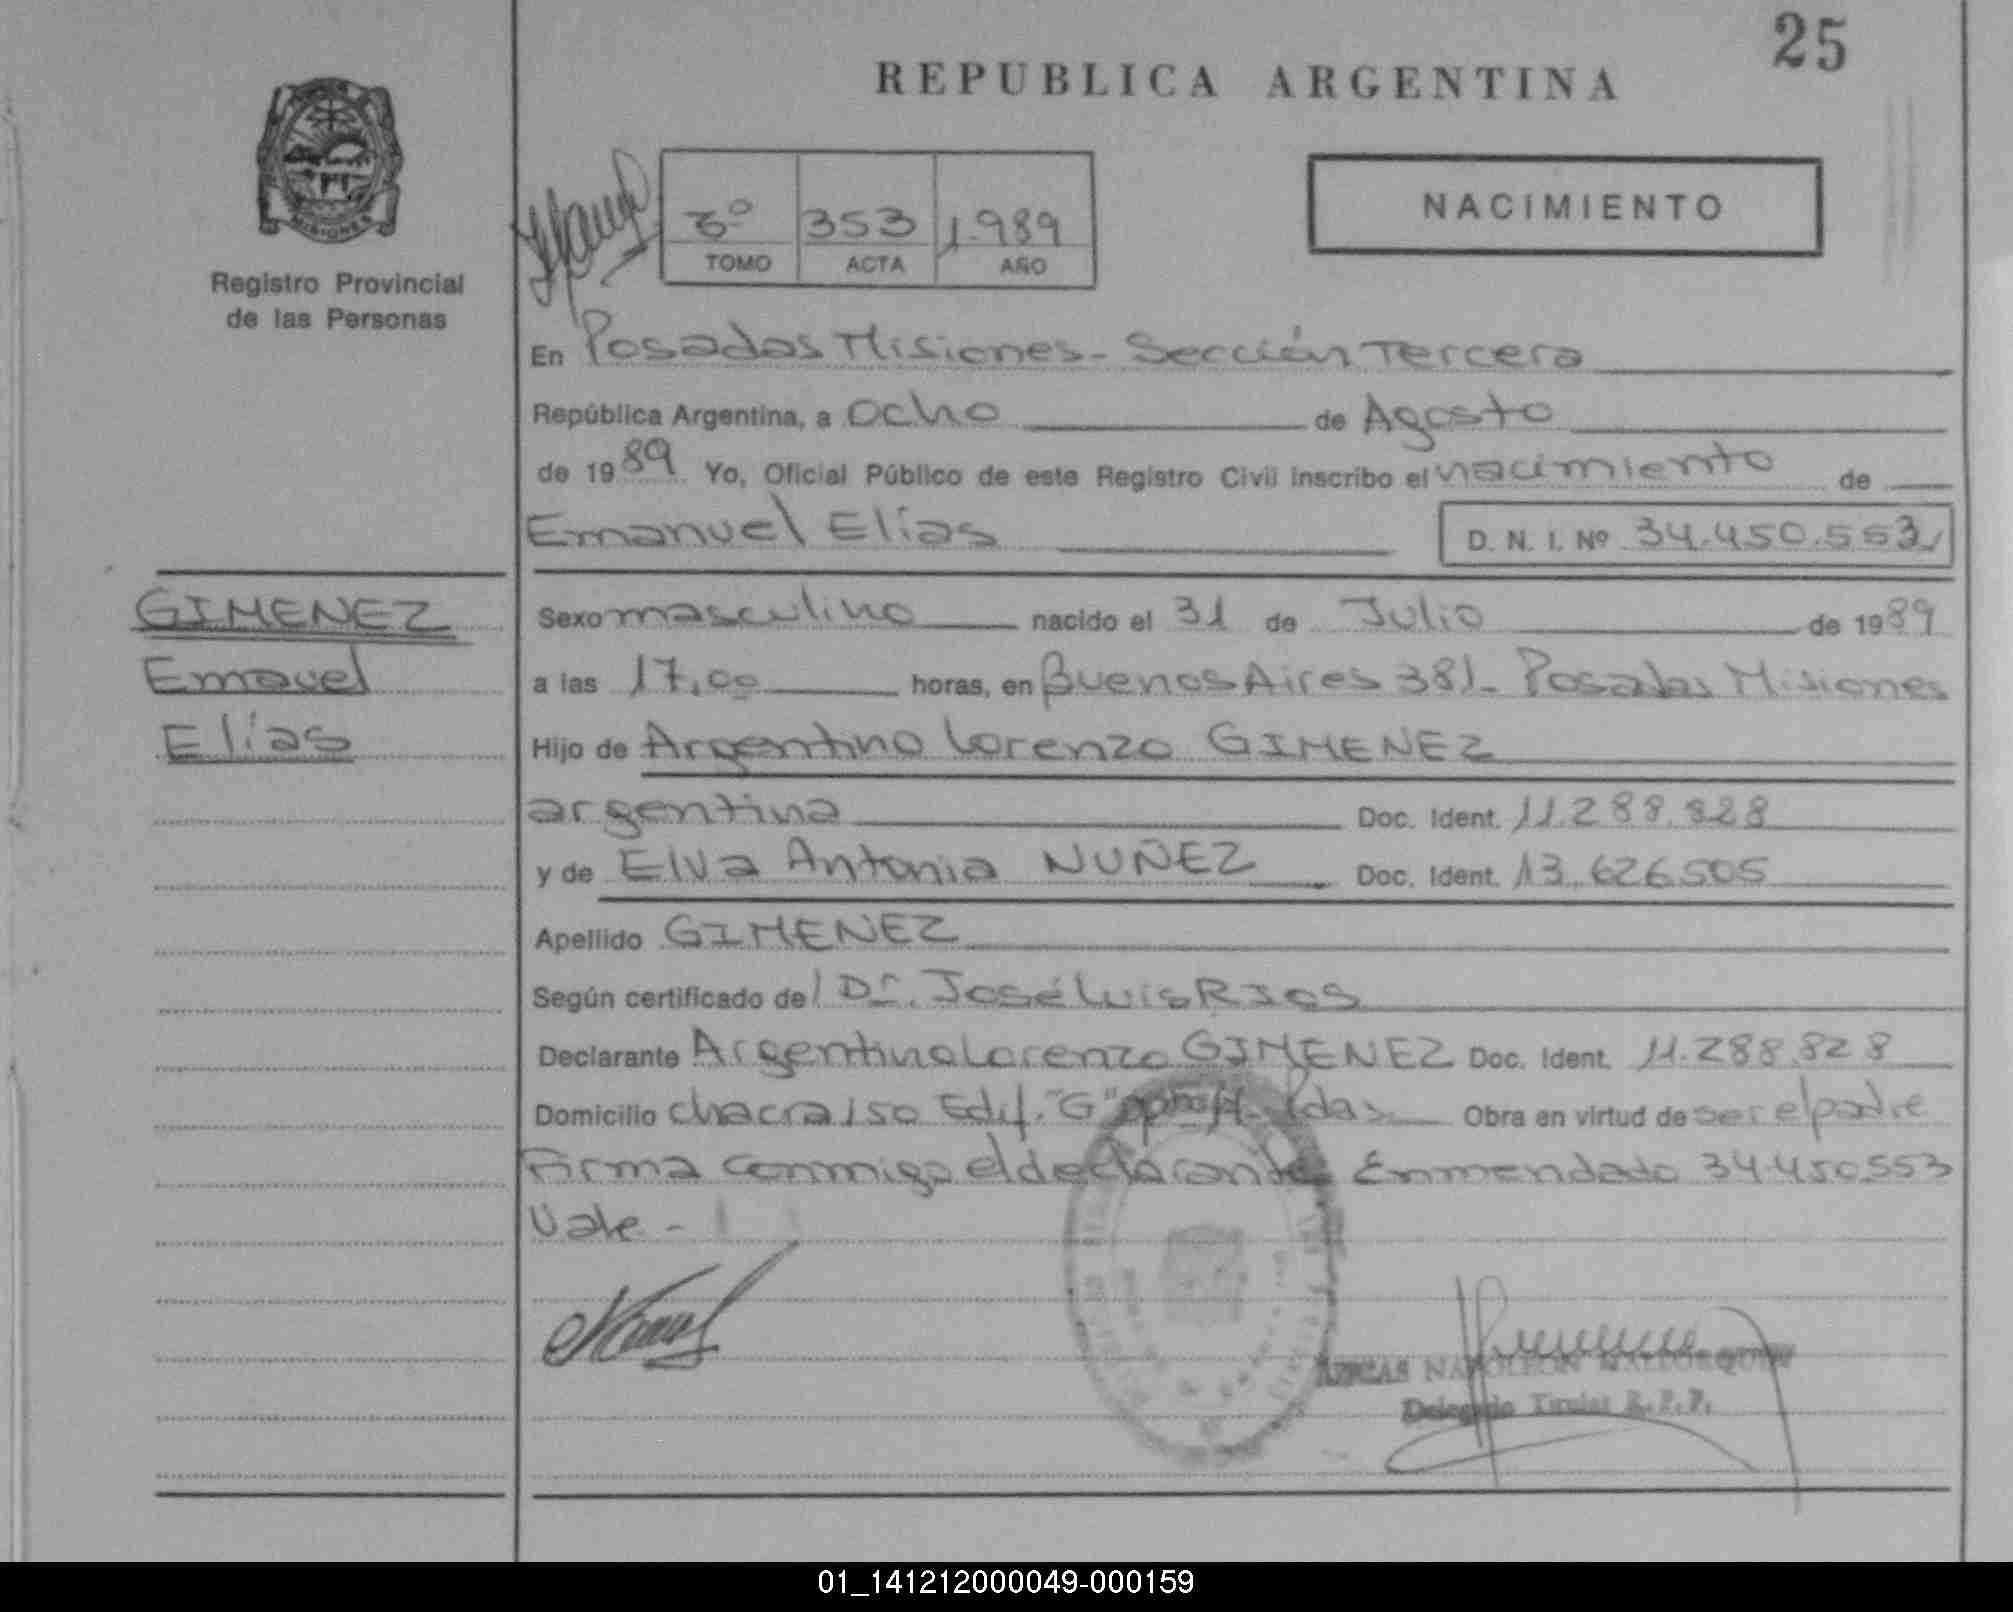 25
REPUBLICA ARGENTINA
MISIONES
Registro Provincial
de las Personas
3º 353 1.989
TOMO ACTA AÑO
NACIMIENTO
En Posadas Misiones - Sección Tercera
República Argentina, a ocho de Agosto
de 1989 Yo, Oficial Público de este Registro Civil inscribo el nacimiento de
Emanuel Elías D. N. I. Nº 34.450.553
GIMENEZ
Emauel
Elías
Sexo masculino nacido el 31 de Julio de 1989
a las 17,00 horas, en Buenos Aires 381- Posadas Misiones
Hijo de Argentino Lorenzo GIMENEZ
argentina Doc. Ident. 11.288.828
y de Elva Antonia NUÑEZ Doc. Ident. 13.626.505
Apellido GIMENEZ
Según certificado del Dr. José Luis RIOS
Declarante Argentino Lorenzo GIMENEZ Doc. Ident. 11.288.828
Domicilio chacra 150 Edif. "G" Pdas. Obra en virtud de ser el padre
Firma conmigo el declarante Enmendado 34.450.553
Vale -
NAPOLEON MALLORQUIN
Delegado Titular R. P. P.
01_141212000049-000159